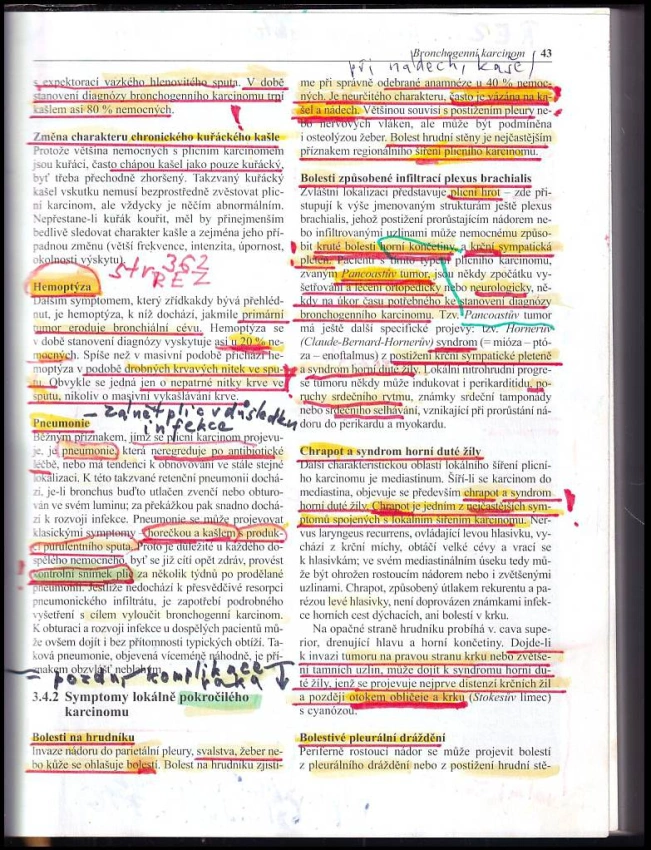 Bronchogenní karcinom 43
při nádech, kašel
s expektorací vazkého hlenovitého sputa. V době
stanovení diagnózy bronchogenního karcinomu trpí
kašlem asi 80 % nemocných.
Změna charakteru chronického kuřáckého kašle
Protože většina nemocných s plicním karcinomem
jsou kuřáci, často chápou kašel jako pouze kuřácký,
byť třeba přechodně zhoršený. Takzvaný kuřácký
kašel vskutku nemusí bezprostředně zvěstovat plic-
ní karcinom, ale vždycky je něčím abnormálním.
Nepřestane-li kuřák kouřit, měl by přinejmenším
bedlivě sledovat charakter kašle a zejména jeho pří-
padnou změnu (větší frekvence, intenzita, úpornost,
okolnosti výskytu).
str. 362
REZ
Hemoptýza
Dalším symptomem, který zřídkakdy bývá přehléd-
nut, je hemoptýza, k níž dochází, jakmile primární
tumor eroduje bronchiální cévu. Hemoptýza se
v době stanovení diagnózy vyskytuje asi u 20 % ne-
mocných. Spíše než v masivní podobě přichází he-
moptýza v podobě drobných krvavých nitek ve spu-
tu. Obvykle se jedná jen o nepatrné nitky krve ve
sputu, nikoliv o masivní vykašlávání krve.
- zánět plic v důsledku
infekce
Pneumonie
Běžným příznakem, jímž se plicní karcinom projevu-
je, je pneumonie, která neregreduje po antibiotické
léčbě, nebo má tendenci k obnovování ve stále stejné
lokalizaci. K této takzvané retenční pneumonii dochá-
zí, je-li bronchus buďto utlačen zvenčí nebo obturo-
ván ve svém luminu; za překážkou pak snadno dochá-
zí k rozvoji infekce. Pneumonie se může projevovat
klasickými symptomy – horečkou a kašlem s produk-
cí purulentního sputa. Proto je důležité u každého do-
spělého nemocného, byť se již cítí opět zdráv, provést
kontrolní snímek plic za několik týdnů po prodělané
pneumonii. Jestliže nedochází k přesvědčivé resorpci
pneumonického infiltrátu, je zapotřebí podrobného
vyšetření s cílem vyloučit bronchogenní karcinom.
K obturaci a rozvoji infekce u dospělých pacientů mů-
že ovšem dojít i bez přítomnosti typických obtíží. Ta-
ková pneumonie, objevená víceméně náhodně, je pří-
znakem obzvlášť neblahým.
- pozdní komplikace
3.4.2 Symptomy lokálně pokročilého
karcinomu
Bolesti na hrudníku
Invaze nádoru do parietální pleury, svalstva, žeber ne-
bo kůže se ohlašuje bolestí. Bolest na hrudníku zjisti-
me při správně odebrané anamnéze u 40 % nemoc-
ných. Je neurčitého charakteru, často je vázána na ka-
šel a nádech. Většinou souvisí s postižením pleury ne-
bo nervových vláken, ale může být podmíněna
i osteolýzou žeber. Bolest hrudní stěny je nejčastějším
příznakem regionálního šíření plicního karcinomu.
Bolesti způsobené infiltrací plexus brachialis
Zvláštní lokalizaci představuje plicní hrot – zde při-
stupují k výše jmenovaným strukturám ještě plexus
brachialis, jehož postižení prorůstajícím nádorem ne-
bo infiltrovanými uzlinami může nemocnému způso-
bit kruté bolesti horní končetiny, a krční sympatická
pleteň. Pacienti s tímto typem plicního karcinomu,
zvaným Pancoastův tumor, jsou někdy zpočátku vy-
šetřováni a léčeni ortopedicky nebo neurologicky, ně-
kdy na úkor času potřebného ke stanovení diagnózy
bronchogenního karcinomu. Tzv. Pancoastův tumor
má ještě další specifické projevy: tzv. Hornerův
(Claude-Bernard-Hornerův) syndrom (= mióza – ptó-
za – enoftalmus) z postižení krční sympatické pleteně
a syndrom horní duté žíly. Lokální nitrohrudní progre-
se tumoru někdy může indukovat i perikarditidu, po-
ruchy srdečního rytmu, známky srdeční tamponády
nebo srdečního selhávání, vznikající při prorůstání ná-
doru do perikardu a myokardu.
Chrapot a syndrom horní duté žíly
Další charakteristickou oblastí lokálního šíření plicní-
ho karcinomu je mediastinum. Šíří-li se karcinom do
mediastina, objevuje se především chrapot a syndrom
horní duté žíly. Chrapot je jedním z nejčastějších sym-
ptomů spojených s lokálním šířením karcinomu. Ner-
vus laryngeus recurrens, ovládající levou hlasivku, vy-
chází z krční míchy, obtáčí velké cévy a vrací se
k hlasivkám; ve svém mediastinálním úseku tedy mů-
že být ohrožen rostoucím nádorem nebo i zvětšenými
uzlinami. Chrapot, způsobený útlakem rekurentu a pa-
rézou levé hlasivky, není doprovázen známkami infek-
ce horních cest dýchacích, ani bolestí v krku.
Na opačné straně hrudníku probíhá v. cava supe-
rior, drenující hlavu a horní končetiny. Dojde-li
k invazi tumoru na pravou stranu krku nebo zvětše-
ní tamních uzlin, může dojít k syndromu horní du-
té žíly, jenž se projevuje nejprve distenzí krčních žil
a později otokem obličeje a krku (Stokesův límec)
s cyanózou.
Bolestivé pleurální dráždění
Periferně rostoucí nádor se může projevit bolestí
z pleurálního dráždění nebo z postižení hrudní stě-